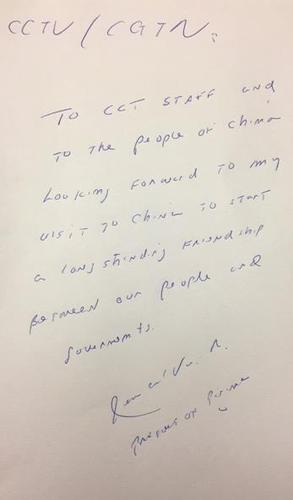 CCTV / CGTN:
TO CCT STAFF and
TO the people of China
Looking Forward to my
visit to China to start
a long standing Friendship
between our people and
governments.